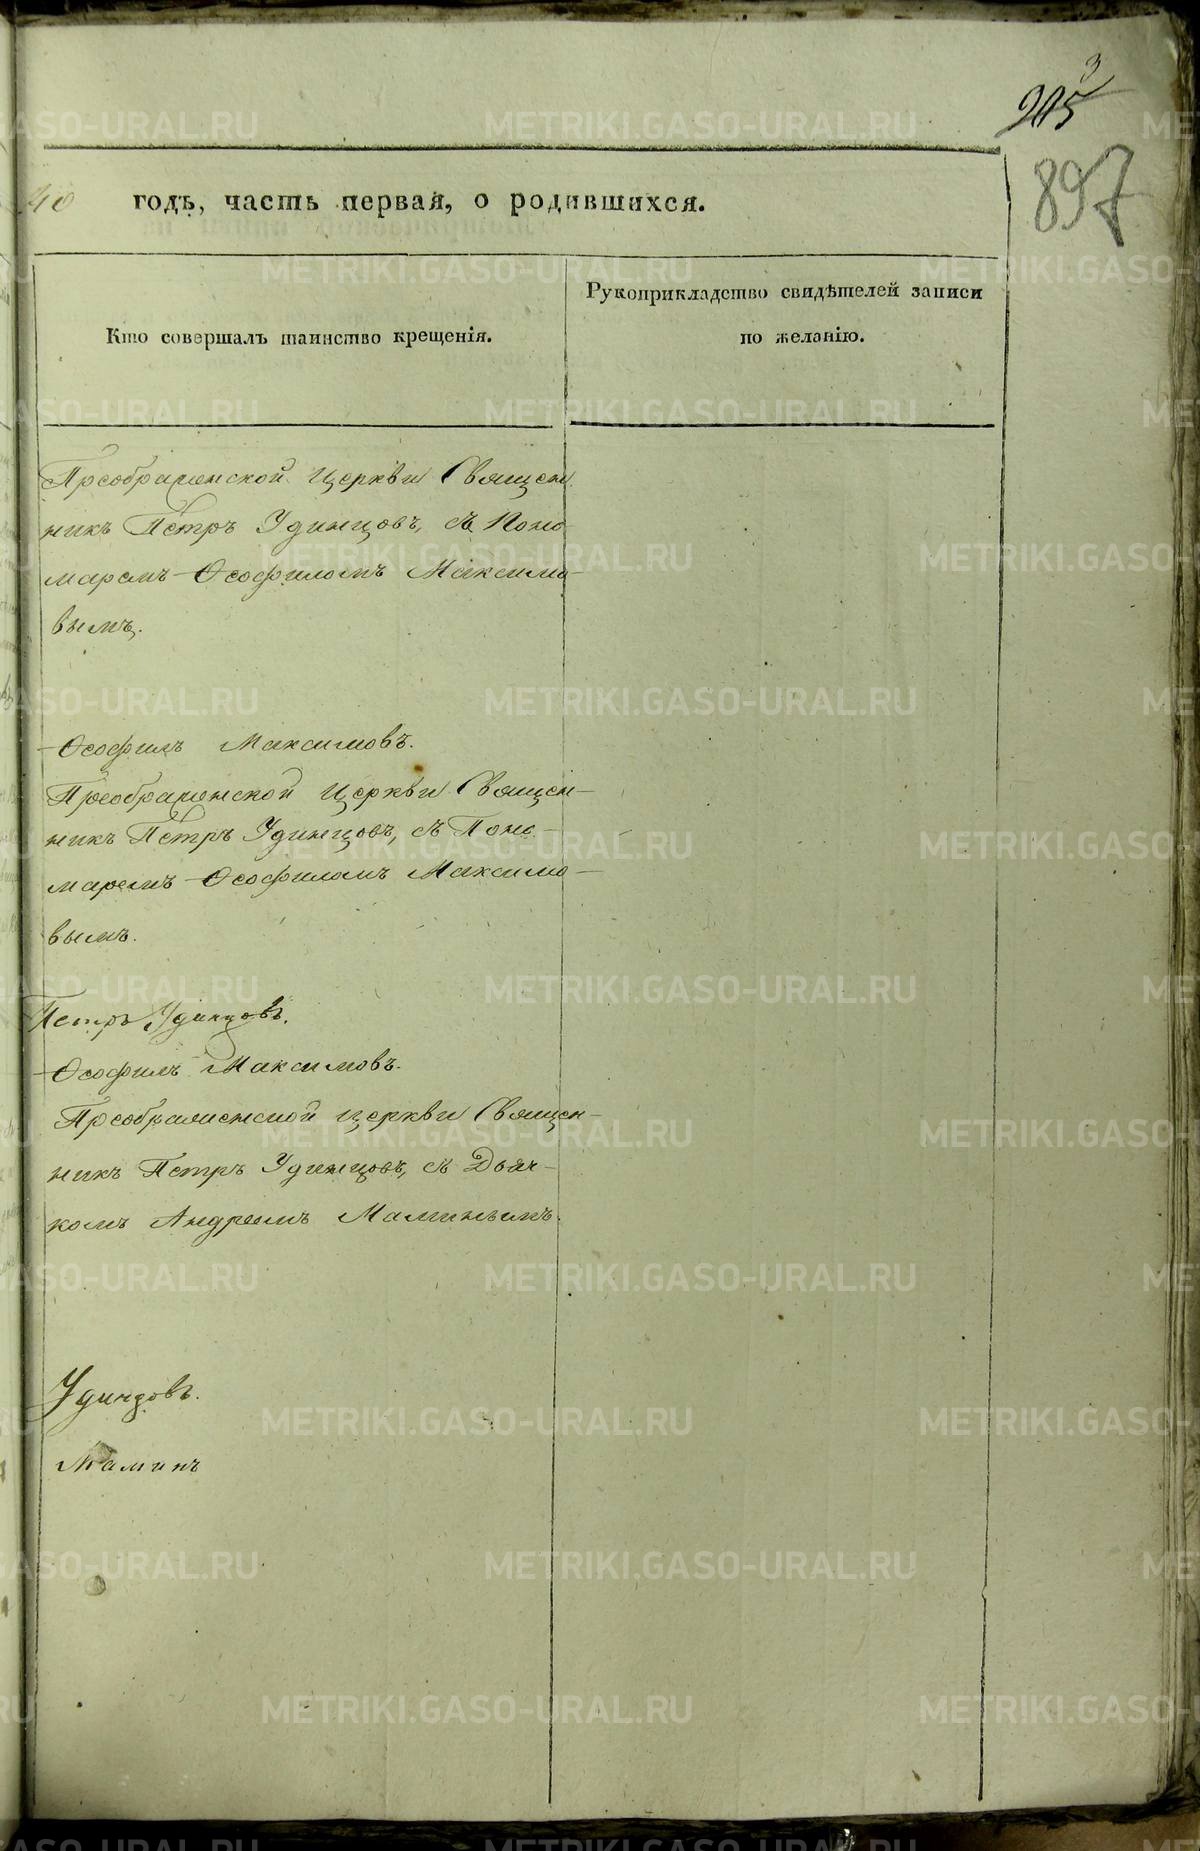 3
205
897
40 годъ, часть первая, о родившихся.
Кто совершалъ таинство крещенія.
Рукоприкладство свидѣтелей записи
по желанію.
Преображенской Церкви Священ
никъ Петръ Удинцовъ, съ Поно
маремъ Ѳеофиломъ Максимо-
вымъ.
Ѳеофилъ Максимовъ.
Преображенской Церкви Священ-
никъ Петръ Удинцовъ, съ Поно-
маремъ Ѳеофиломъ Максимо-
вымъ.
Петръ Удинцовъ.
Ѳеофилъ Максимовъ.
Преображенской Церкви Священ-
никъ Петръ Удинцовъ, съ Дьяч-
комъ Андреемъ Маминымъ.
Удинцовъ.
Маминъ
METRIKI.GASO-URAL.RU